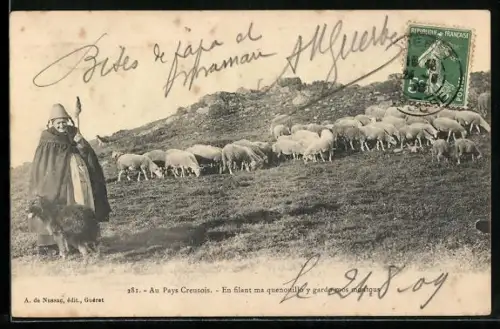 Bises de papa et
maman
AGuerbe
REPUBLIQUE FRANÇAISE
281. - Au Pays Creusois. - En filant ma quenouille y garde mos moutous
Le 21.8.09
A. de Nussac, édit., Guéret